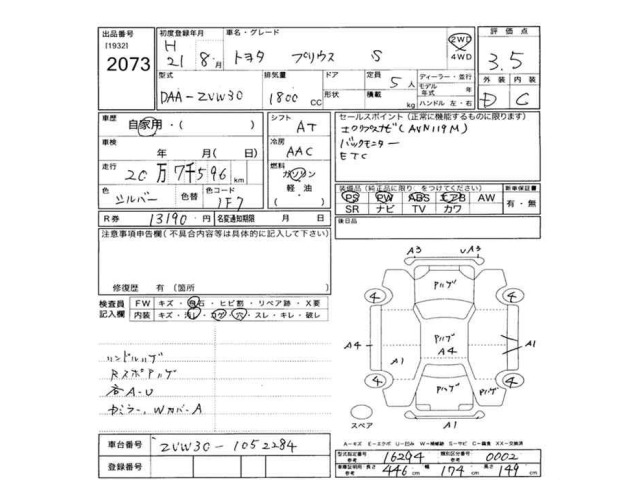 出品番号
[1932]
2073
初度登録年月
H
21 8月
車名・グレード
トヨタ プリウス S
2WD
4WD
評価点
3.5
外装 内装
D C
型式
DAA-ZVW30
排気量
1800 CC
ドア
形状
定員 5人
積載 kg
ディーラー・並行
モデル年式 年
ハンドル 左・右
車歴
自家用・( )
車検
年 月( 日)
走行
20万7千596 km
色
シルバー
色コード
1F7
シフト
AT
冷房
AAC
燃料
ガソリン
軽油
( )
R券 13190円
名変通知期限 月 日
セールスポイント(正常に機能するものに限ります)
エクリプスナビ(AVN119M)
バックモニター
ETC
装備品(純正品に限り)をつけてください
PS PW ABS エアB AW
SR ナビ TV カワ
新車保証書
有・無
後日品
注意事項申告欄(不具合内容等は具体的に記入して下さい)
修復歴 有(箇所 )
検査員
記入欄
FW キズ・飛石・ヒビ割・リペア跡・X要
内装 キズ・汚レ・コゲ・穴・スレ・キレ・破レ
ハンドルハゲ
RスポAハゲ
各A-U
WカバーA
車台番号 ZVW30-1052284
登録番号
A3 UA3
Aハゲ
4 4
A4 A1 Aハゲ A4 A1
4 4
Aハゲ Aハゲ
A1
スペア
A-キズ E-エクボ U-凹み W-補修跡 S-サビ C-腐食 XX-交換済
型式指定番号 参考 16294
類別区分番号 参考 0002
車検証明用 参考 長さ 446cm 幅 174cm 高さ 149cm